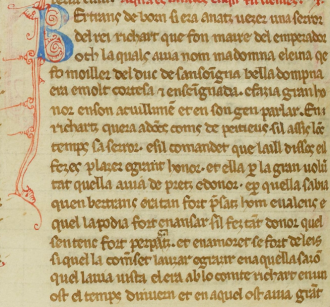 Bertrans de born si era anatz uezer una seror
del rei richart que fon maire del emperador
oth la quals auia nom ma domna eleina qe
fo moiller del duc de sansoigna bella dompna
era emolt cortesa ⁊ enseignada. efazia gran ho
nor en son acuillimen et en son gen parlar. En
richartz quera adoncs coms de peitieus sil assis lonc
temps sa seror. esil comandet que laill disses eil
fezes plazer egrant honor. et ella per la gran uolun
tat quella auia de pretz edonor. e per quella sabia
quen bertrans era tan fort prisatz hom eualens e
quel la podia fort enansar sil fetz tant donor quel
sen tenc fort per pagatz. et enamoret se fort de leis
si quel la comenset lauzar egrazir en aquella sazo
quel lauia uista el era ab lo comte richart en un
ost el temps diuern et en aquel ost auia grant